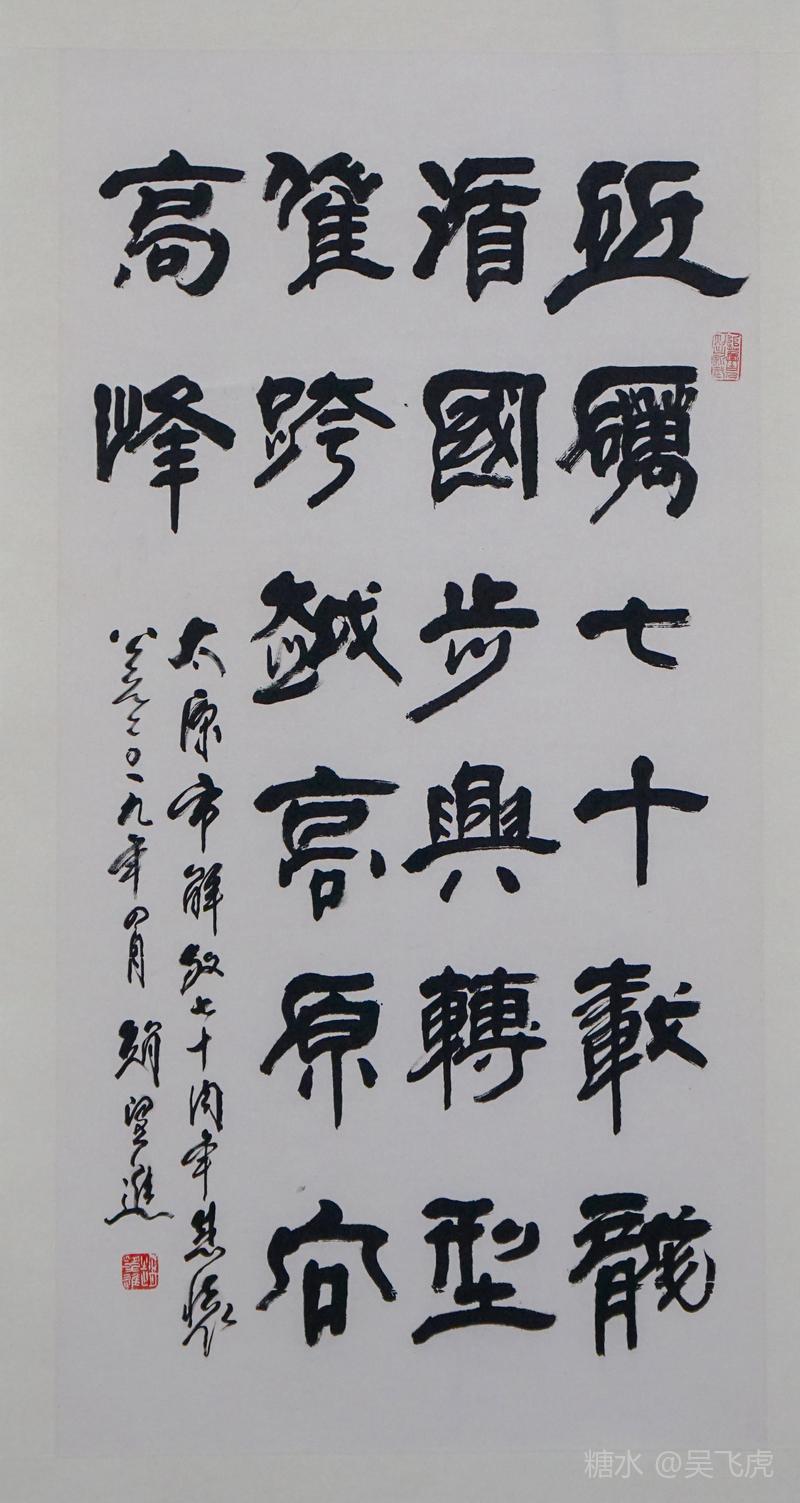 砥礪七十載龍
循國步興轉型
跨越高原向
高峰
太原市解放七十周年感懷
公元二〇一九年四月 趙望進
糖水 @吴飞虎